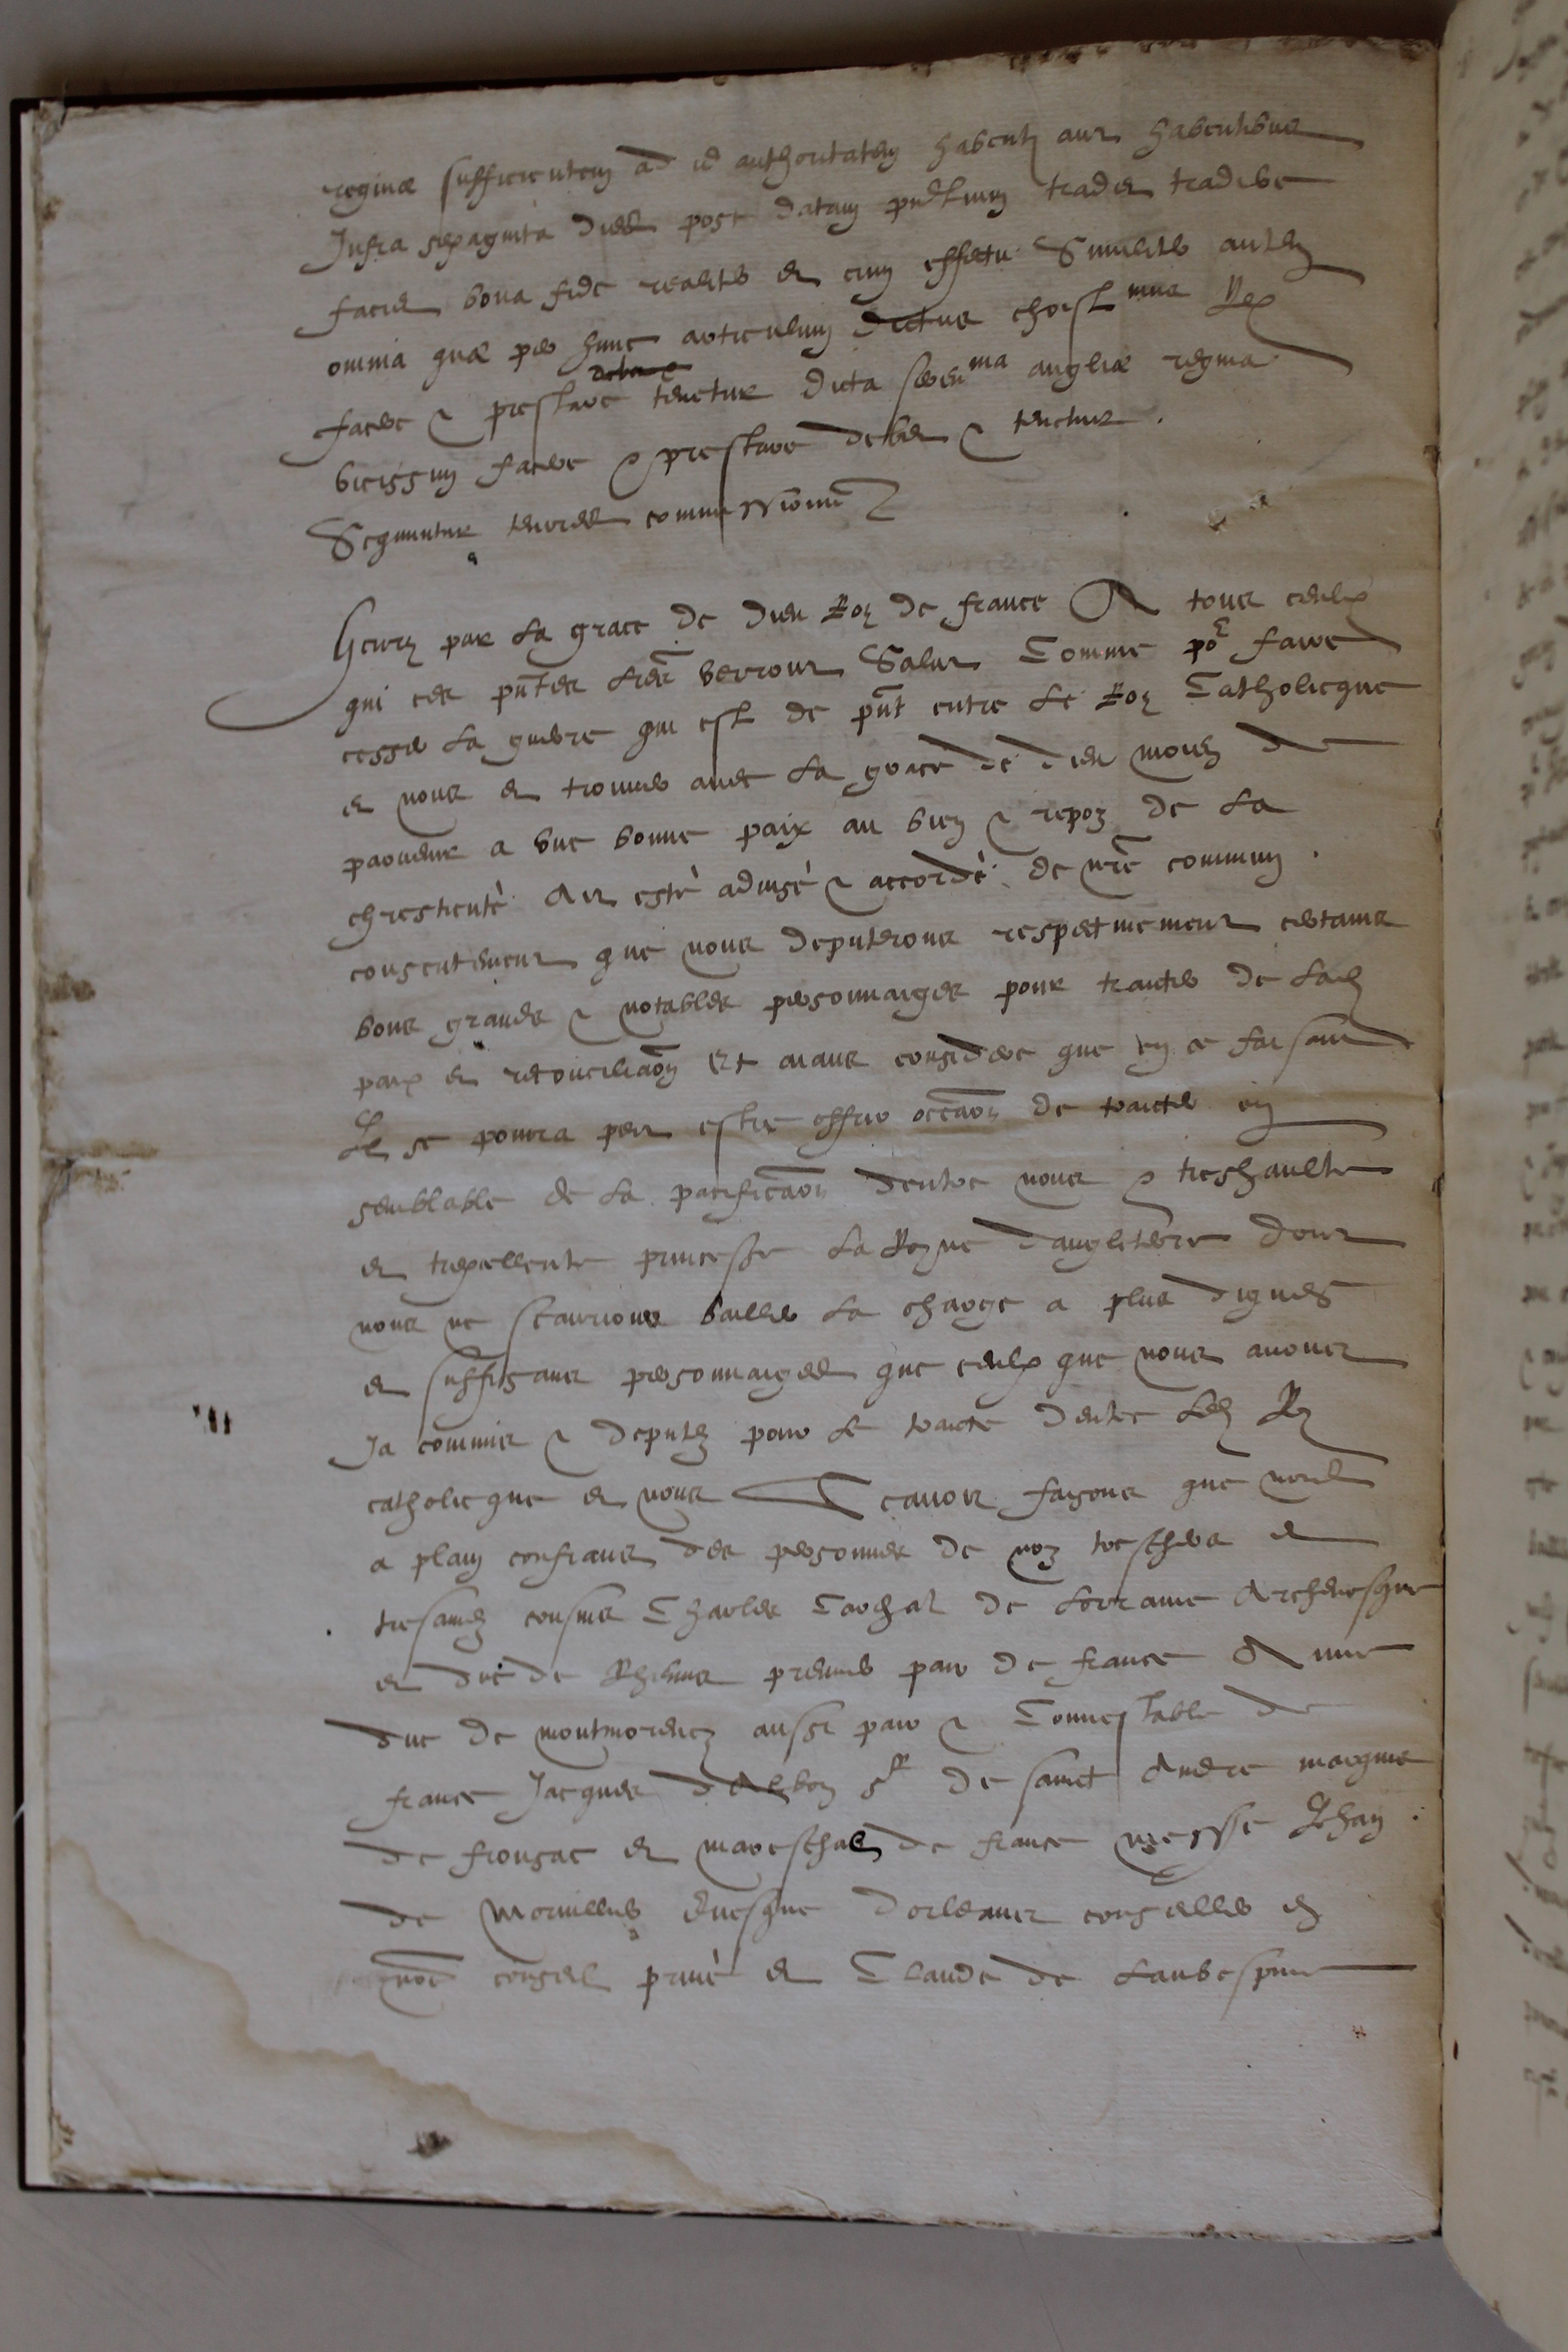 reginæ sufficientem ad id authoritatem habenti aut habentibus
Infra sexaginta dies post datam pntium tradet tradive
faciet bona fide realiter et cum effectu Similiter autem
omnia quæ per hunc articulum dictus christmus Rex
facere & prestare tenetur dicta seren ma angliæ regina
vicissim facere & prestare debet & tenetur .
Sequuntur tenores commissionu
Henry par la grace de dieu Roy de france A tous ceulx
qui ces pntes lres verront Salut Comme por faire
cesser la guerre qui est de pnt entre le Roy Catholicque
et nous et trouver avec la grace de dieu moien de
parvenir a une bonne paix au bien & repoz de la
chrestienté Ait esté advisé & accordé de nre commun
consentement que nous deputerons respectivement certains
bons grands & notables personnaiges pour traicter de lad
paix et reconciliaon Et aians consideré que en ce faisant
Il se pourra peu estre offrir occaon de traicter en
semblable de la pacificaon dentre nous & treshaulte
et trexcellente princesse la Royne dangleterre dont
nous ne scaurions bailler la charge a plus dignes
et suffisans personnaiges que ceulx que nous avons
Ja commis & deputez pour le traicte dentre led Roy
catholicque et nous Scavoir faisons que nous
a plain confians des personnes de noz treschers et
tresamez cousins Charles Cardial de Lorraine Archevesque
et duc de Rheims premier pair de france Anne
duc de montmorency aussi pair & Connestable de
france Jacques dAlbon sr de sainct Andre marquis
de fronsac et mareschal de france messe Jehan
de Morvillier Evesque dorleans conseiller en
nre conseil privé et Claude de Laubespine